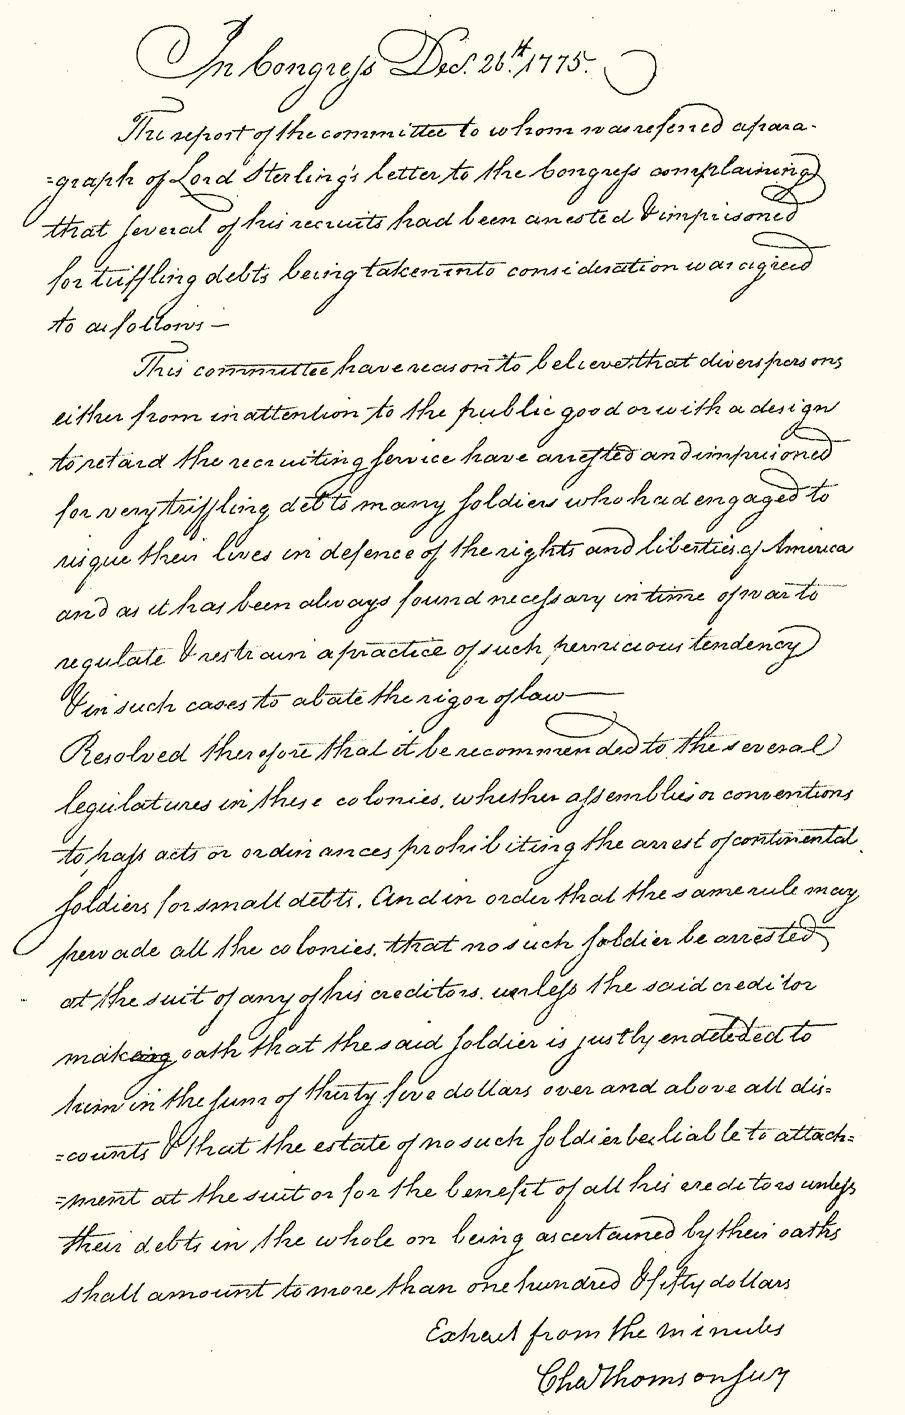 In Congress Decr. 26th. 1775.
The report of the committee to whom was referred a para-
=graph of Lord Sterling's letter to the Congress complaining
that several of his recruits had been arrested & imprisoned
for triffling debts being taken into consideration was agreed
to as follows —
This committee have reason to believe that divers persons
either from inattention to the public good or with a design
to retard the recruiting service have arrested and imprisoned
for very triffling debts many soldiers who had engaged to
risque their lives in defence of the rights and liberties of America
and as it has been always found necessary in time of war to
regulate & restrain a practice of such pernicious tendency
& in such cases to abate the rigor of law —
Resolved therefore that it be recommended to the several
legislatures in these colonies, whether assemblies or conventions
to pass acts or ordinances prohibiting the arrest of continental
soldiers for small debts. And in order that the same rule may
pervade all the colonies, that no such soldier be arrested
at the suit of any of his creditors, unless the said creditor
making oath that the said soldier is justly endebted to
him in the sum of thirty five dollars over and above all dis=
=counts & that the estate of no such soldier be liable to attach=
=ment at the suit or for the benefit of all his creditors unless
their debts in the whole on being ascertained by their oaths
shall amount to more than one hundred & fifty dollars
Extract from the minutes
Chas Thomson Secy